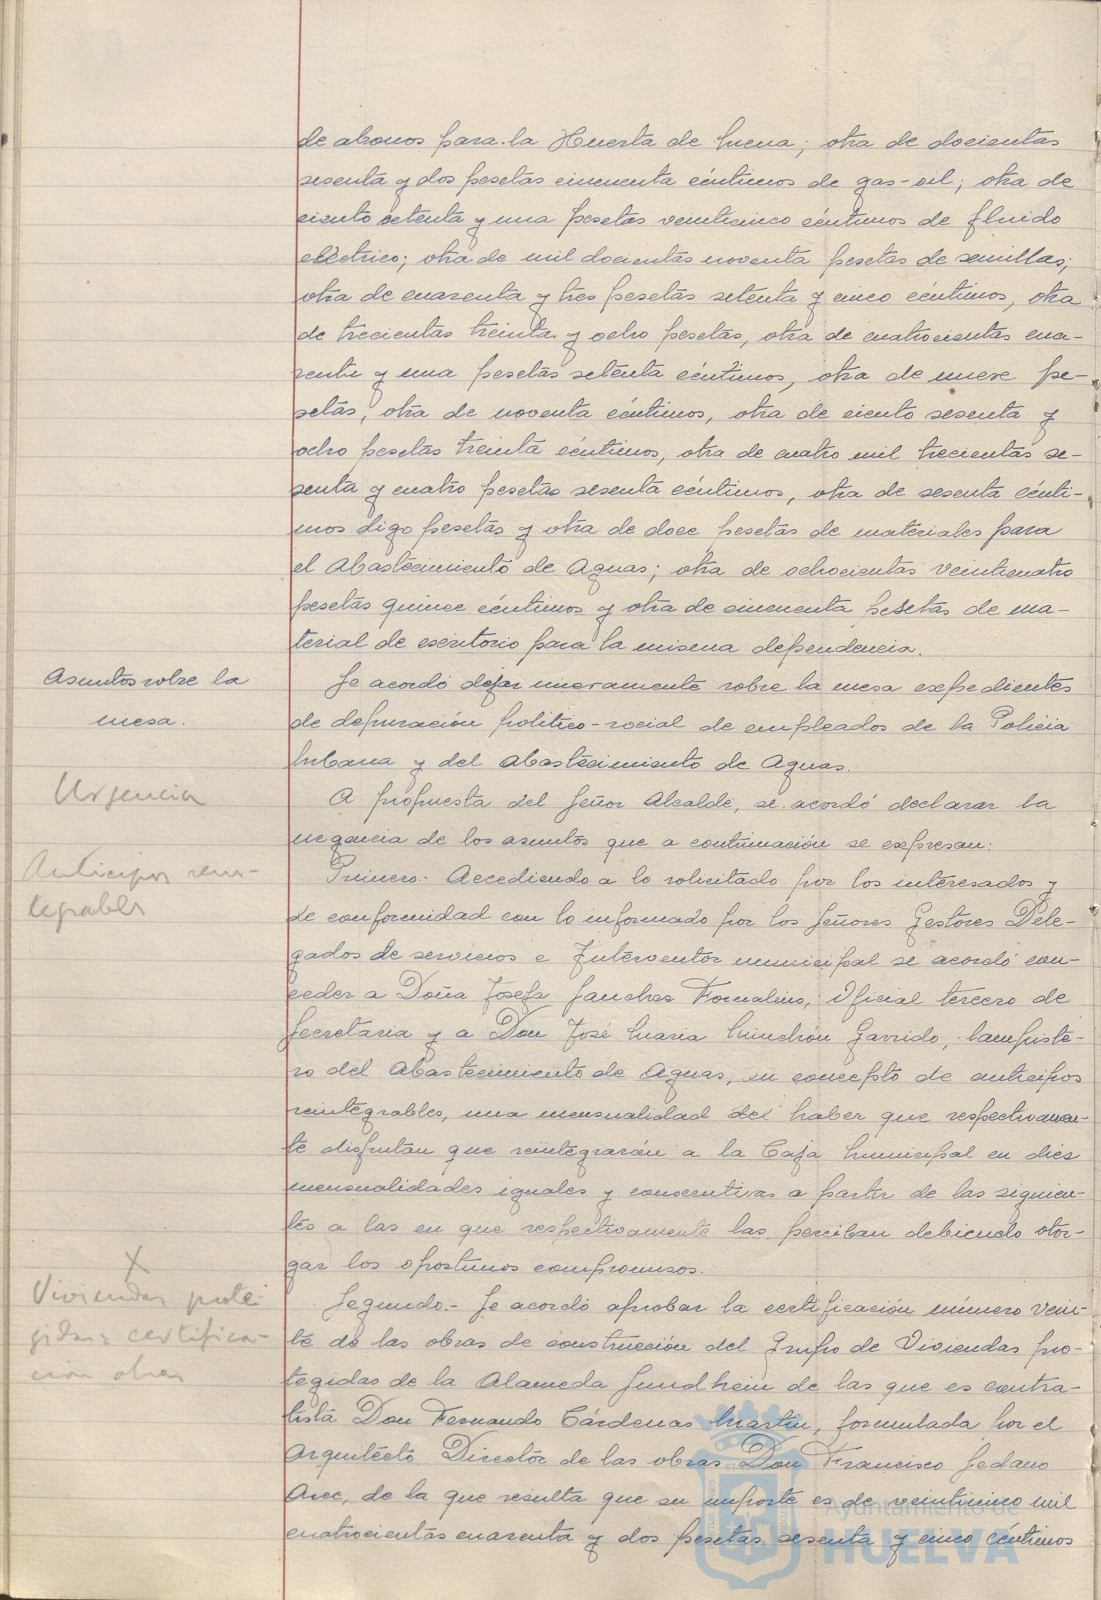 de abonos para la Huerta de Mena; otra de docientas
sesenta y dos pesetas cincuenta céntimos de gas-oil; otra de
ciento setenta y una pesetas veinticinco céntimos de fluido
eléctrico; otra de mil docientas noventa pesetas de semillas;
otra de cuarenta y tres pesetas setenta y cinco céntimos, otra
de trecientas treinta y ocho pesetas, otra de cuatrocientas cua-
renta y una pesetas setenta céntimos, otra de nueve pe-
setas, otra de noventa céntimos, otra de ciento sesenta y
ocho pesetas treinta céntimos, otra de cuatro mil trecientas se-
senta y cuatro pesetas sesenta céntimos, otra de sesenta cénti-
mos digo pesetas y otra de doce pesetas de materiales para
el Abastecimiento de Aguas; otra de ochocientas veinticuatro
pesetas quince céntimos y otra de cincuenta pesetas de ma-
terial de escritorio para la misma dependencia.
Asuntos sobre la
mesa.
Se acordó dejar nuevamente sobre la mesa expedientes
de depuración político-social de empleados de la Policía
Urbana y del Abastecimiento de Aguas.
Urgencia
A propuesta del Señor Alcalde, se acordó declarar la
urgencia de los asuntos que a continuación se expresan:
Anticipos rein-
tegrables
Primero.- Accediendo a lo solicitado por los interesados y
de conformidad con lo informado por los Señores Gestores Dele-
gados de servicios e Interventor municipal se acordó con-
ceder a Doña Josefa Sanchez Oficial tercero de
Secretaria y a Don José Maria Minchón Garrido, lampiste-
ro del Abastecimiento de Aguas, en concepto de anticipos
reintegrables, una mensualidad del haber que respectivamen-
te disfrutan que reintegrarán a la Caja Municipal en diez
mensualidades iguales y consecutivas a partir de las siguien-
tes a las en que respectivamente las perciban debiendo otor-
gar los oportunos compromisos.
X
Viviendas prote-
gidas certifica-
ción obras
Segundo.- Se acordó aprobar la certificación número vein-
te de las obras de construcción del Grupo de Viviendas pro-
tegidas de la Alameda Sundheim de las que es contra-
tista Don Fernando Cárdenas Martin, formulada por el
Arquitecto Director de las obras Don Francisco Sedano
Arce, de la que resulta que su importe es de veinticinco mil
cuatrocientas cuarenta y dos pesetas sesenta y cinco céntimos
Ayuntamiento de
HUELVA